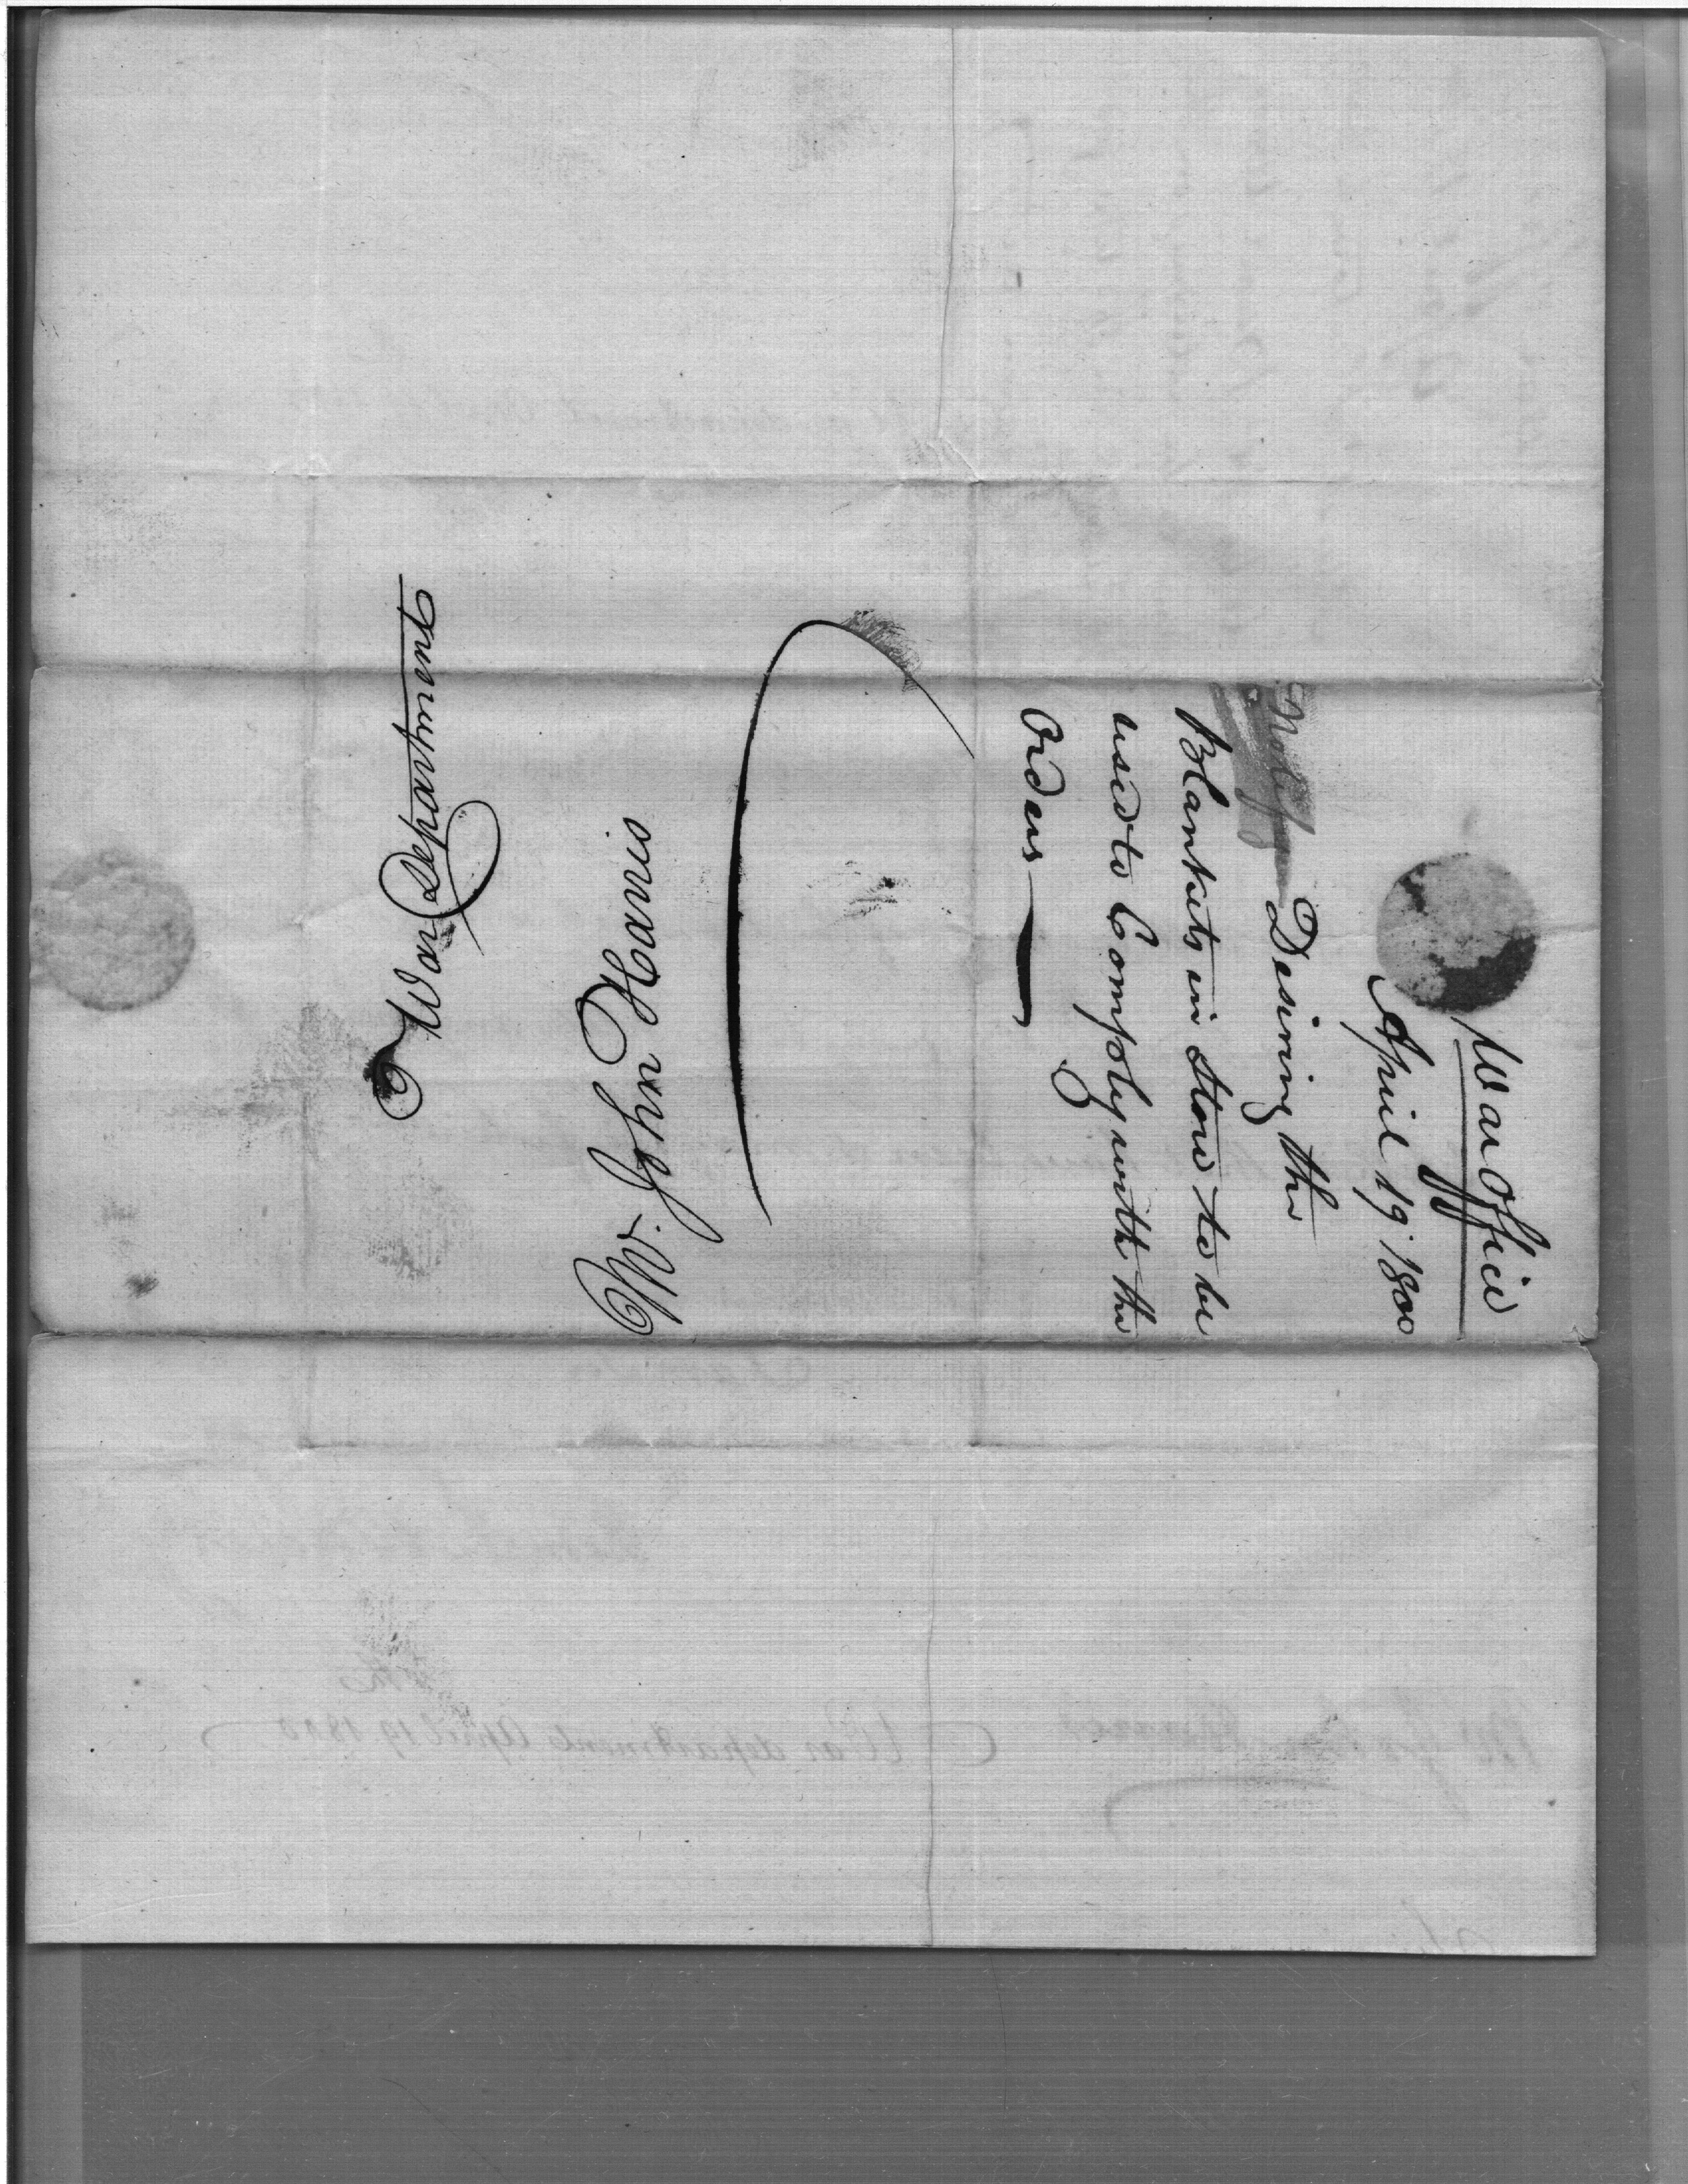 War Department
Mr. John Harris
War Office
April 19 1800
Desiring the
Blankets in Store to be
used to Comply with the
Orders
War department April 19 1800